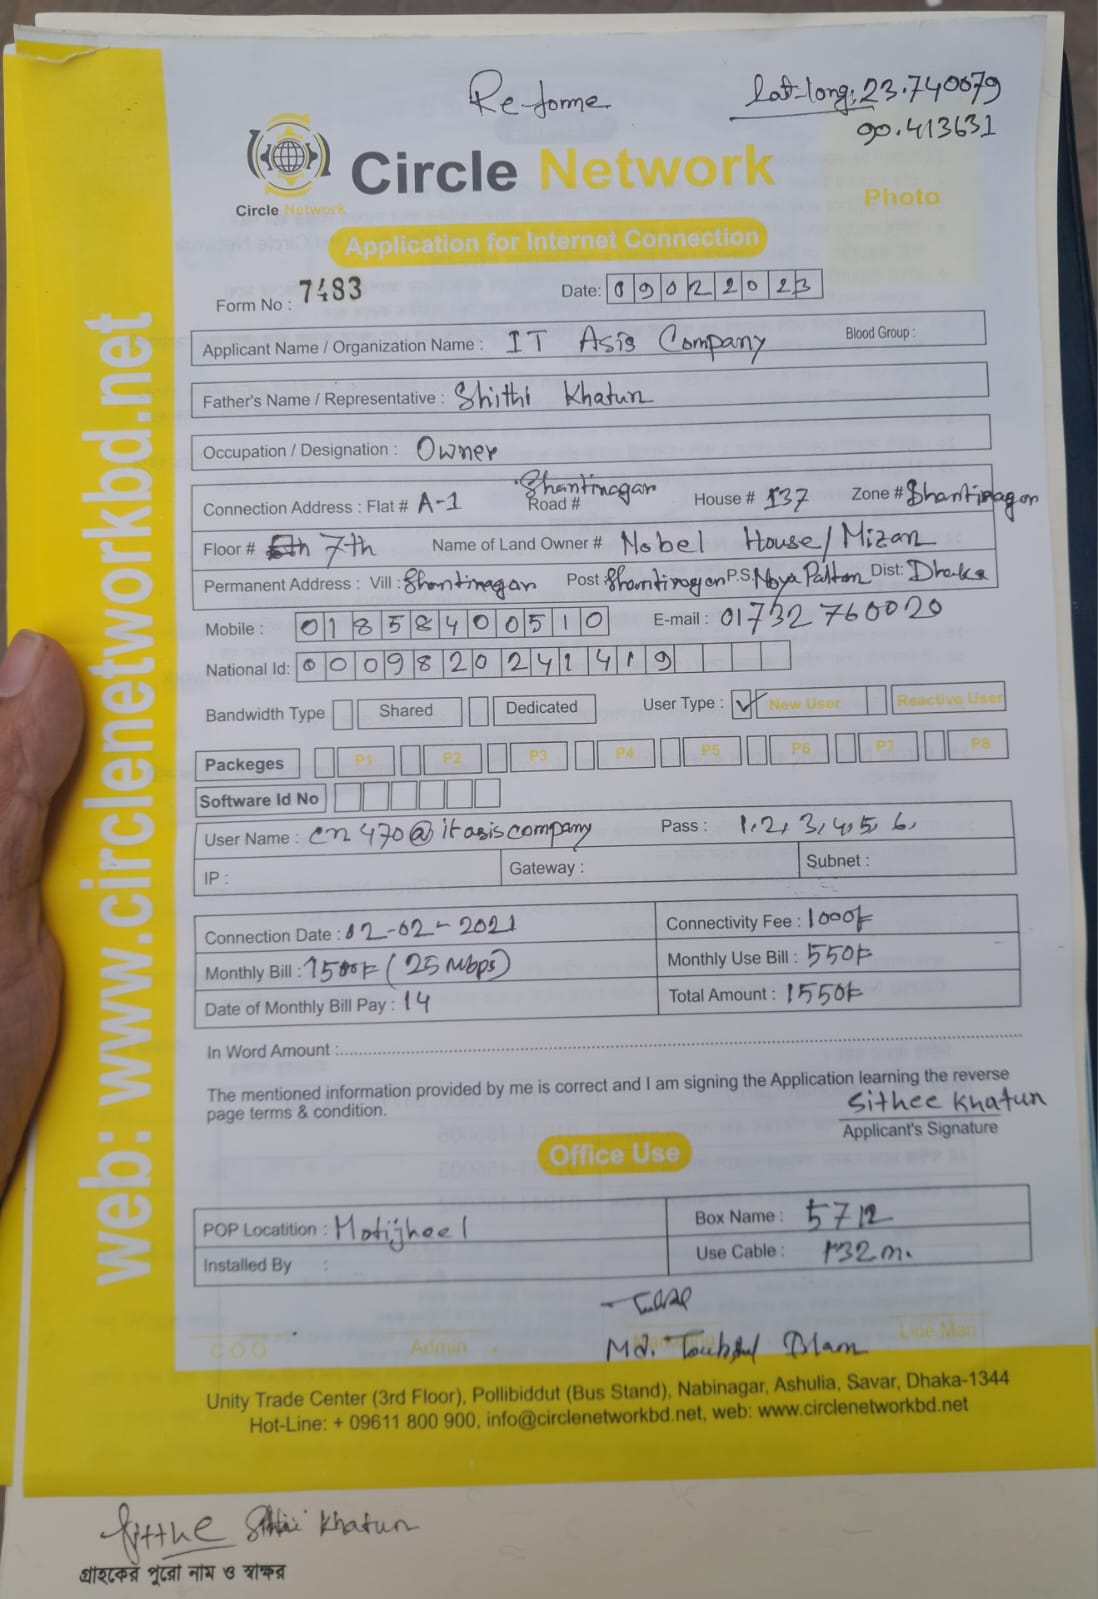 Re-forme
Lat-long: 23.740079
90.413631
Circle Network
Circle Network
Photo
Application for Internet Connection
Form No : 7483
Date: 09022023
Applicant Name / Organization Name : IT Asis Company Blood Group :
Father's Name / Representative : Shithi Khatun
Occupation / Designation : Owner
Connection Address : Flat # A-1 Road # Shantinagar House # 137 Zone # Shantinagar
Floor # 7th Name of Land Owner # Nobel House/Mizan
Permanent Address : Vill : Shantinagar Post Shantinagar P.S. Noya Paltan Dist: Dhaka
Mobile : 01858400510 E-mail : 01732760020
National Id: 0009820241419
Bandwidth Type Shared Dedicated User Type : ✓ New User Reactive User
Packeges P1 P2 P3 P4 P5 P6 P7 P8
Software Id No
User Name : cn470@itasiscompany Pass : 1,2,3,4,5,6,
IP : Gateway : Subnet :
Connection Date : 02-02-2021 Connectivity Fee : 1000/-
Monthly Bill : 1500/- (25 Mbps) Monthly Use Bill : 550/-
Date of Monthly Bill Pay : 14 Total Amount : 1550/-
In Word Amount :
The mentioned information provided by me is correct and I am signing the Application learning the reverse
page terms & condition.
Sithee Khatun
Applicant's Signature
Office Use
POP Locatition : Motijheel Box Name : 5712
Installed By : Use Cable : 132m.
C.O.O Admin Line Man
Md. Islam
Unity Trade Center (3rd Floor), Pollibiddut (Bus Stand), Nabinagar, Ashulia, Savar, Dhaka-1344
Hot-Line: + 09611 800 900, info@circlenetworkbd.net, web: www.circlenetworkbd.net
web: www.circlenetworkbd.net
Khatun
গ্রাহকের পুরো নাম ও স্বাক্ষর